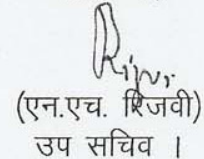 (एन.एच. रिजवी)
उप सचिव ।